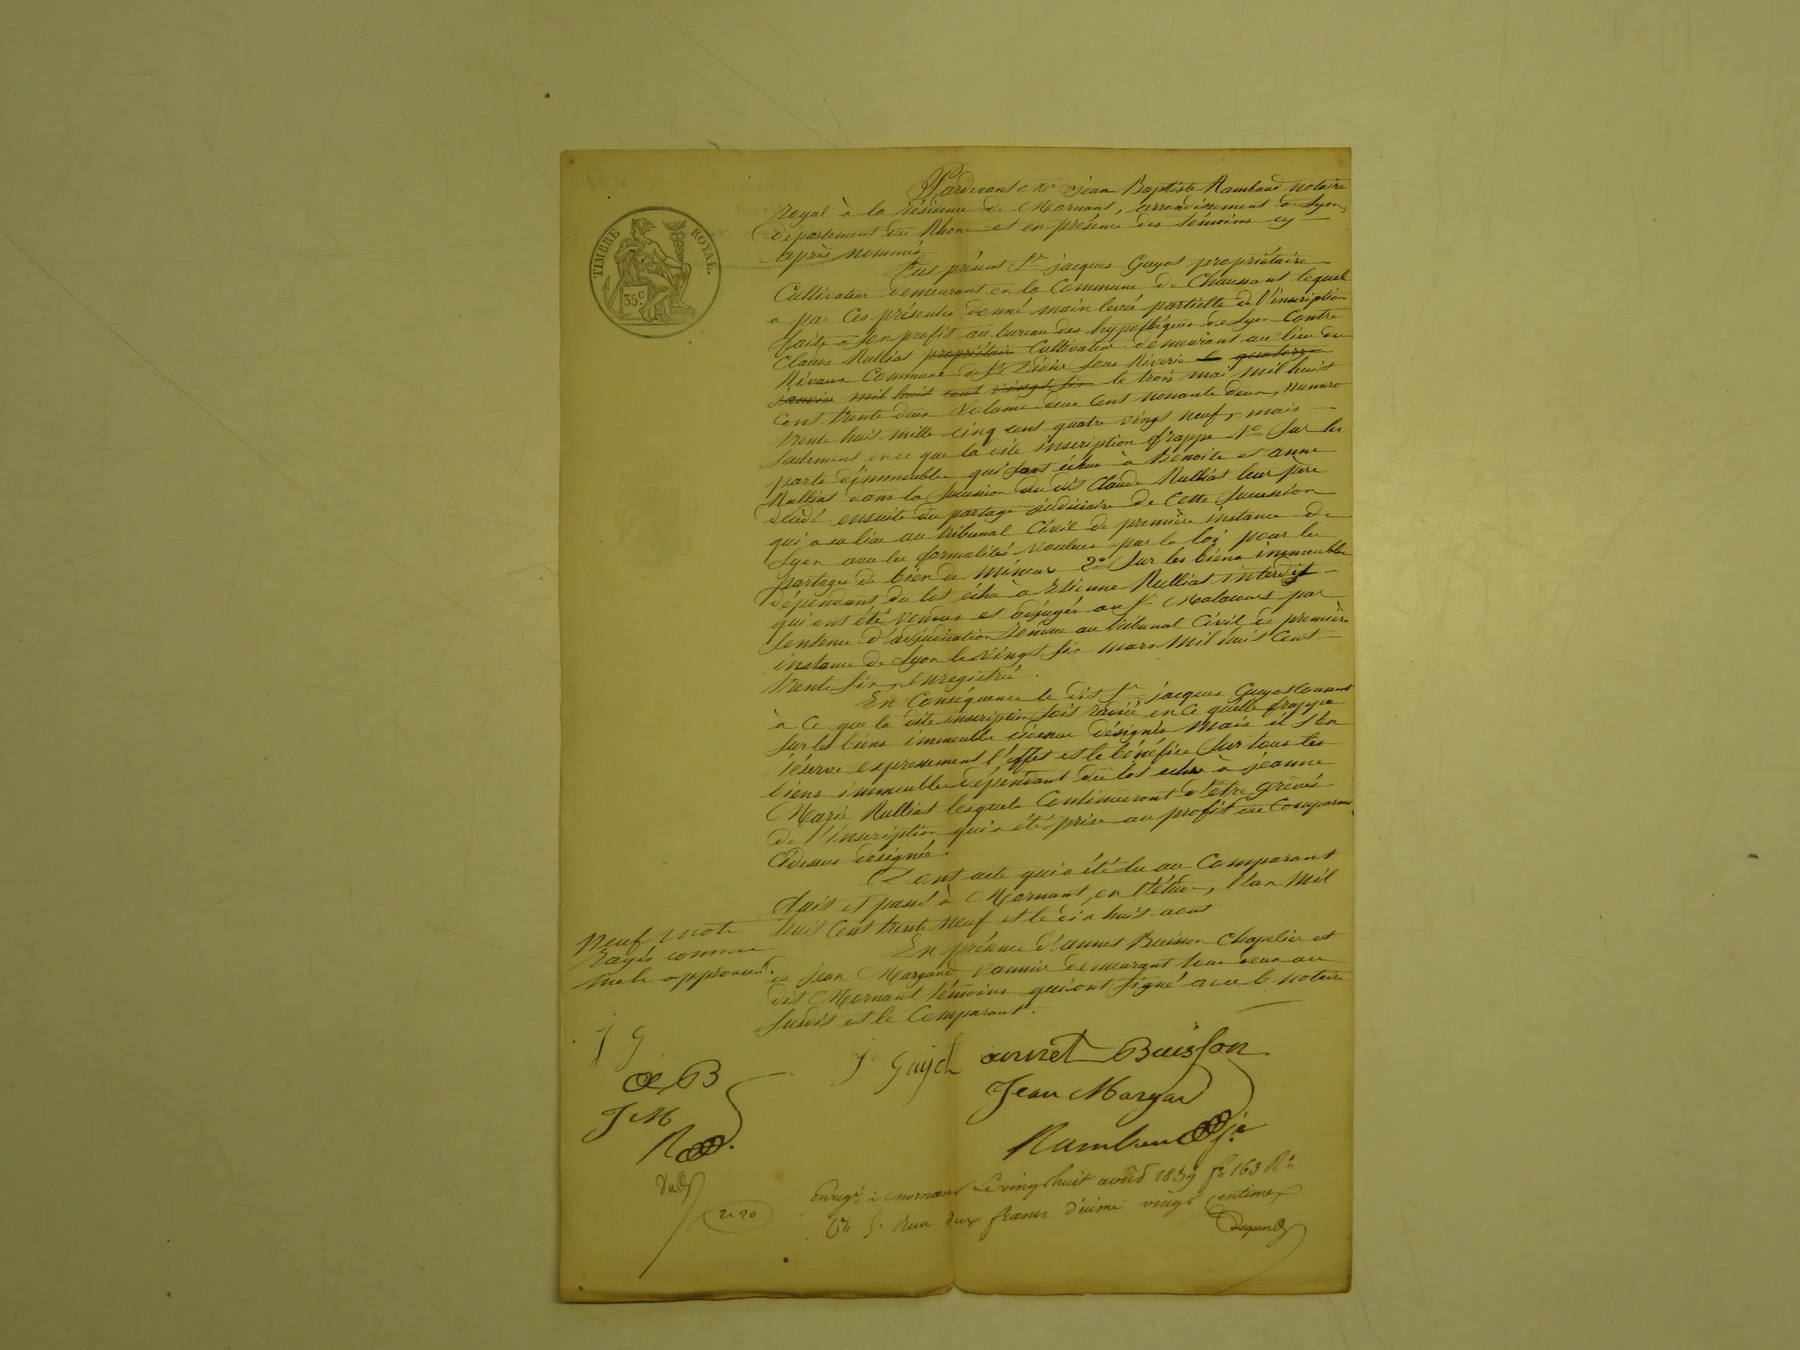 TIMBRE ROYAL.
35.c
Pardevant Me Jean Baptiste Rambaud notaire
royal à la résidence de Mornant, arrondissement de Lyon,
département du Rhone et en présence des témoins cy
après nommés
Fut présent Sr jacques Guyot propriétaire
Cultivateur demeurant en la Commune de Chaussant lequel
a par Ces présentes donné main levée partielle de l'inscription
faite a son profit au bureau des hypothèques de Lyon Contre
Claude Rulliat propriétaire Cultivateur demeurant au lieu de
Commune de St Didier sous Riverie le quatorze
janvier mil huit cent vingt six le trois mai mil huit
cent trente deux volume deux Cent nonante deux, numero
trente huit mille cinq cent quatre vingt neuf, mais
seulement en ce que la dite inscription frappe 1o sur les
parts d'immeubles qui sont échus à Benoite et anne
Rulliat dans la succession du dit Claude Rulliat leur père
décédé ensuite du partage judiciaire de Cette succession
qui a eu lieu au tribunal Civil de première instance de
Lyon avec les formalités voulues par la loi pour les
partages de bien de Mineurs 2o sur les biens immeubles
dépendant du lot échu à Etienne Rulliat interdit
qui ont été vendus et adjugés au Sr par
sentence d'adjudication tenue au tribunal Civil de première
instance de Lyon le vingt six mars mil huit Cent
trente six, enregistrée.
En Conséquence le dit Sr jacques Guyot Consent
à Ce que la dite inscription soit raiée en Ce quelle frappe
sur les biens immeubles cidessus désignés Mais il s'en
réserve expressement l'effet et le bénéfice sur tous les
biens immeubles dépendant du lot echu à jeanne
Marie Rulliat lesquels Continueront d'etre grévés
de l'inscription qui a été prise au profit du Comparant
Cidessus désignée.
Dont acte qui a été lu au Comparant
fait et passé à Mornant, en l'étude, l'an Mil
huit Cent trente neuf et le dix huit aout
En présence d'annet Buisson Chapelier et
de Jean Margand, vannier demeurant tous deux au
dit Mornant témoins qui ont signé avec le notaire
susdit et le Comparant.
Neuf mots
rayés comme
nuls approuvés.
J G
J Guyot annet Buisson
a B
Jean Margan
J M
R
Rambaud
2 20
Enregé à mornant le vingt huit août 1839 fo 163 Ro
Ce 5. reçu deux francs décime vingt centimes